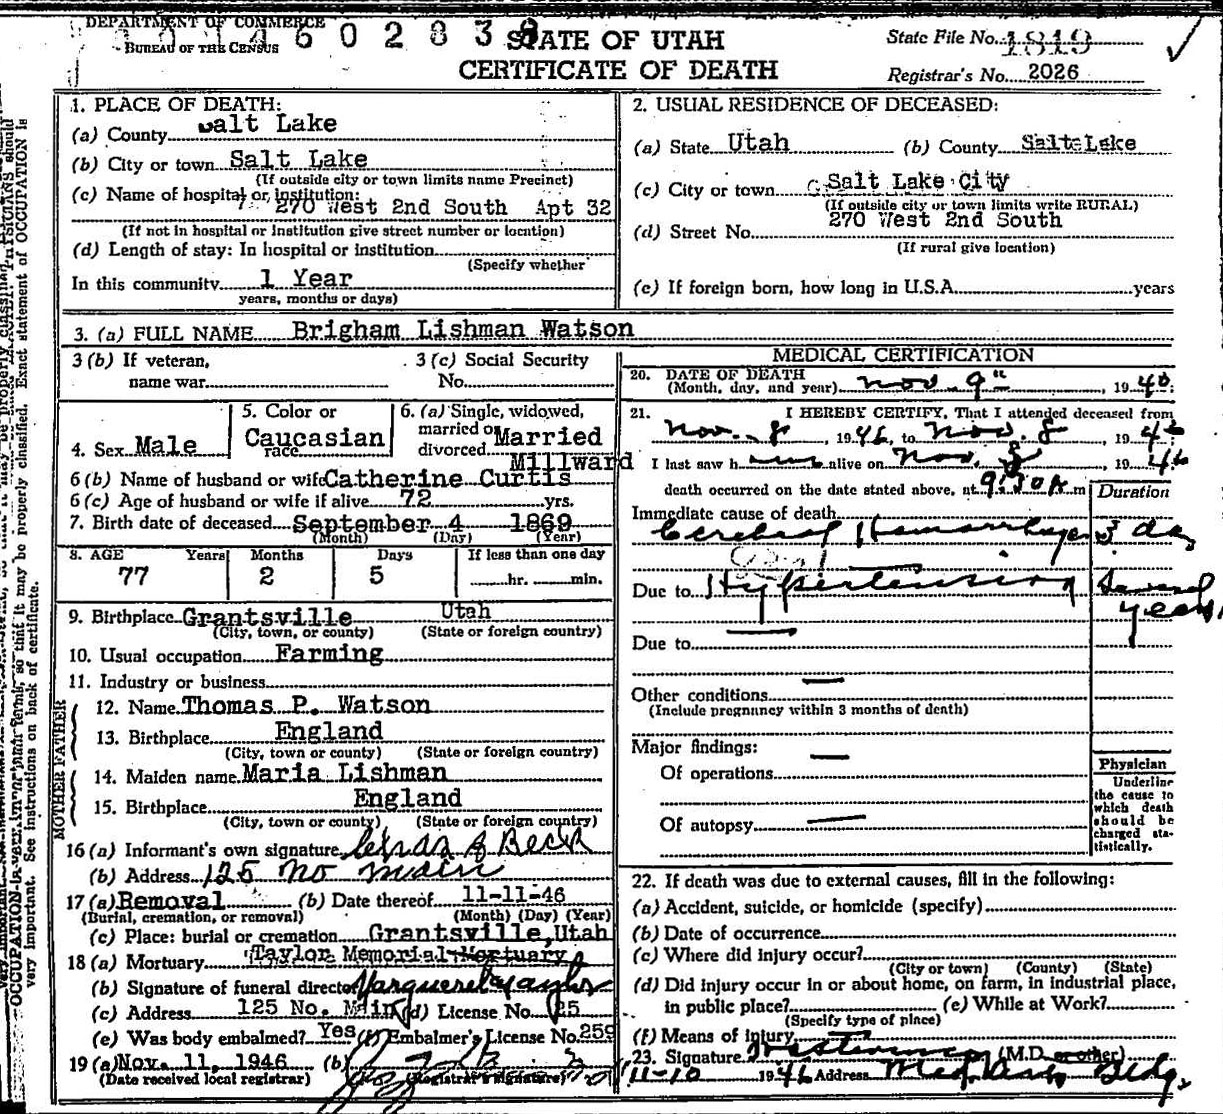 DEPARTMENT OF COMMERCE
BUREAU OF THE CENSUS
STATE OF UTAH
CERTIFICATE OF DEATH
State File No. 1819
Registrar's No. 2026
1. PLACE OF DEATH:
(a) County Salt Lake
(b) City or town Salt Lake
(If outside city or town limits name Precinct)
(c) Name of hospital or institution:
270 West 2nd South Apt 32
(If not in hospital or institution give street number or location)
(d) Length of stay: In hospital or institution
(Specify whether
In this community 1 Year
years, months or days)
2. USUAL RESIDENCE OF DECEASED:
(a) State Utah (b) County Salt Lake
(c) City or town Salt Lake City
(If outside city or town limits write RURAL)
(d) Street No. 270 West 2nd South
(If rural give location)
(e) If foreign born, how long in U.S.A. years
3. (a) FULL NAME Brigham Lishman Watson
3 (b) If veteran,
name war
3 (c) Social Security
No.
4. Sex Male
5. Color or
race Caucasian
6. (a) Single, widowed,
married or
divorced Married
6 (b) Name of husband or wife Catherine Curtis Millward
6 (c) Age of husband or wife if alive 72 yrs.
7. Birth date of deceased September 4 1869
(Month) (Day) (Year)
8. AGE Years Months Days If less than one day
77 2 5 hr. min.
9. Birthplace Grantsville Utah
(City, town, or county) (State or foreign country)
10. Usual occupation Farming
11. Industry or business
FATHER
12. Name Thomas P. Watson
13. Birthplace England
(City, town or county) (State or foreign country)
MOTHER
14. Maiden name Maria Lishman
15. Birthplace England
(City, town or county) (State or foreign country)
16 (a) Informant's own signature Beck
(b) Address 125 No Main
17 (a) Removal (b) Date thereof 11-11-46
(Burial, cremation, or removal) (Month) (Day) (Year)
(c) Place: burial or cremation Grantsville, Utah
18 (a) Mortuary Taylor Memorial Mortuary
(b) Signature of funeral director
(c) Address 125 No. Main (d) License No. 25
(e) Was body embalmed? Yes (f) Embalmer's License No. 259
19 (a) Nov. 11, 1946 (b)
(Date received local registrar) (Registrar's signature)
MEDICAL CERTIFICATION
20. DATE OF DEATH
(Month, day, and year) Nov. 9th, 1946
21. I HEREBY CERTIFY, That I attended deceased from
Nov. 8, 1946, to Nov. 8, 1946
I last saw him alive on Nov. 8, 1946
death occurred on the date stated above, at 9:30 A m
Duration
Immediate cause of death
Cerebral Hemorrhage 3 da
Due to Hypertension Several
years
Due to
Other conditions
(Include pregnancy within 3 months of death)
Major findings:
Of operations
Of autopsy
Physician
Underline
the cause to
which death
should be
charged sta-
tistically.
22. If death was due to external causes, fill in the following:
(a) Accident, suicide, or homicide (specify)
(b) Date of occurrence
(c) Where did injury occur?
(City or town) (County) (State)
(d) Did injury occur in or about home, on farm, in industrial place,
in public place? (e) While at Work?
(Specify type of place)
(f) Means of injury
23. Signature (M.D. or other)
11-10 1946 Address Med. Arts Bldg.
very important. See instructions on back of certificate.